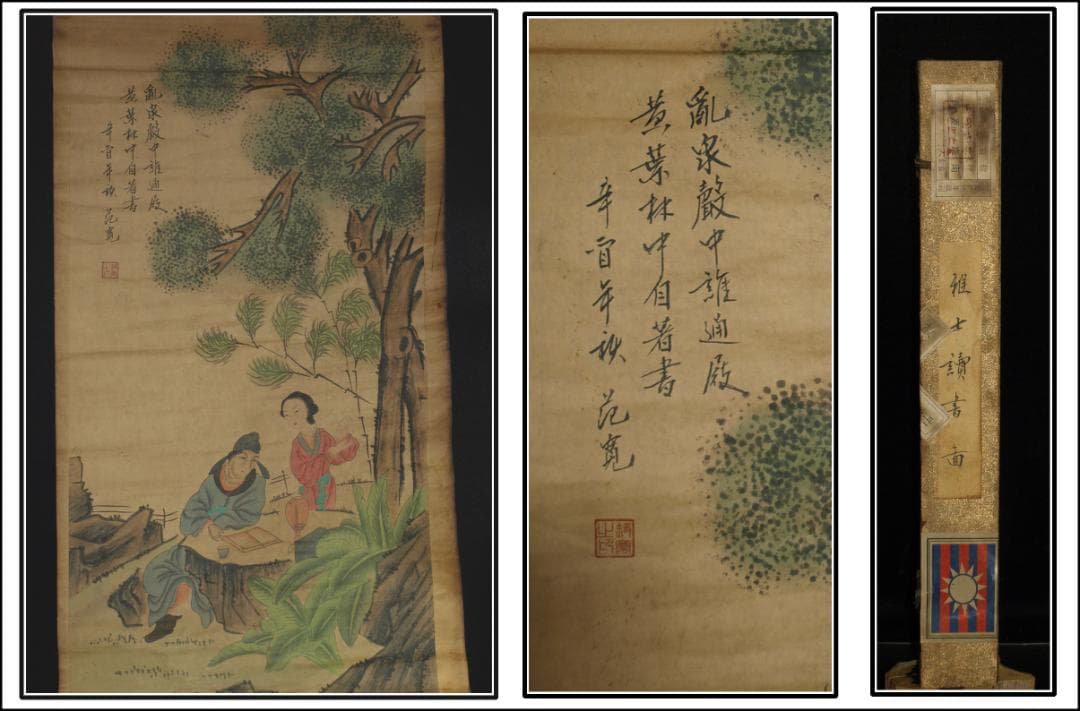 亂泉聲中誰通屐
黃葉林中自著書
辛酉年秋 范寬
亂泉聲中誰通屐
黃葉林中自著書
辛酉年秋 范寬
雅士讀書面